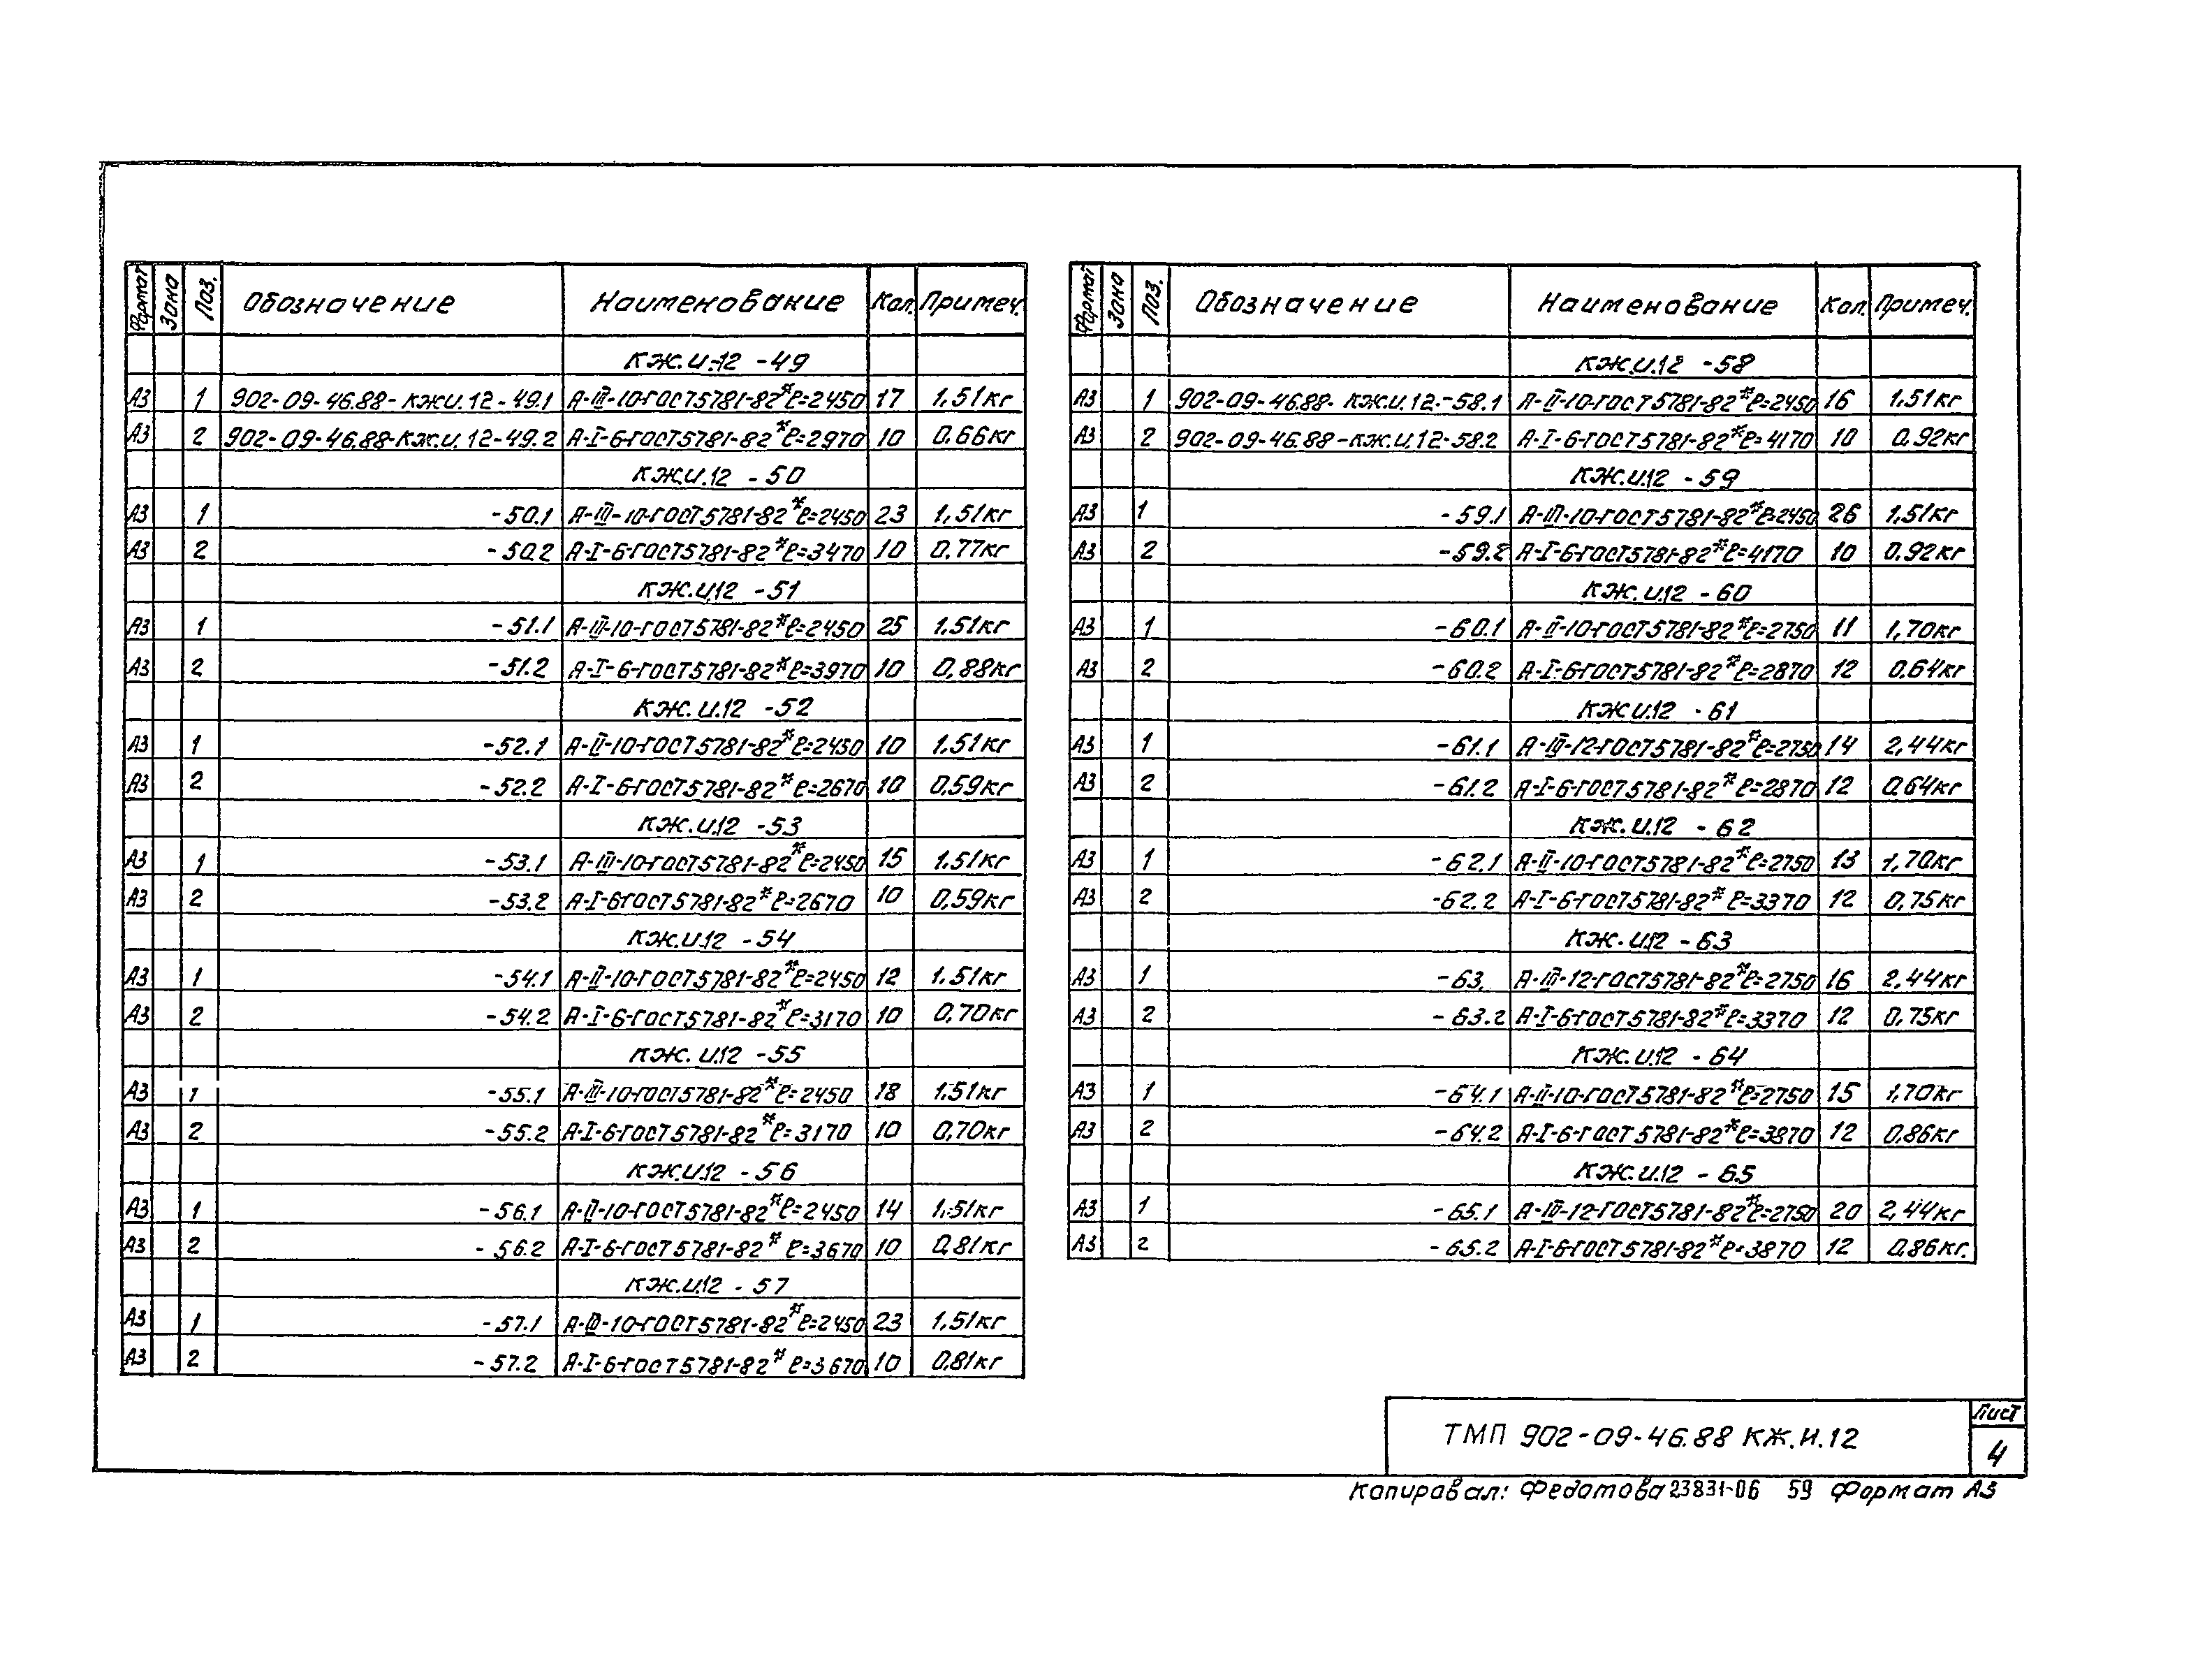 Формат Зона Поз. Обозначение Наименование Кол. Примеч.
КЖ.И.12 -49
А3 1 902-09-46.88-КЖИ.12-49.1 А-III-10-ГОСТ5781-82* ℓ=2450 17 1.51кг
А3 2 902-09-46.88-КЖ.И.12-49.2 А-I-6-ГОСТ5781-82* ℓ=2970 10 0.66кг
КЖ.И.12 -50
А3 1 -50.1 А-III-10-ГОСТ5781-82* ℓ=2450 23 1,51кг
А3 2 -50.2 А-I-6-ГОСТ5781-82* ℓ=3470 10 0,77кг
КЖ.И.12 -51
А3 1 -51.1 А-III-10-ГОСТ5781-82* ℓ=2450 25 1.51кг
А3 2 -51.2 А-I-6-ГОСТ5781-82* ℓ=3970 10 0,88кг
КЖ.И.12 -52
А3 1 -52.1 А-II-10-ГОСТ5781-82* ℓ=2450 10 1.51кг
А3 2 -52.2 А-I-6-ГОСТ5781-82* ℓ=2670 10 0.59кг
КЖ.И.12 -53
А3 1 -53.1 А-III-10-ГОСТ5781-82* ℓ=2450 15 1.51кг
А3 2 -53.2 А-I-6ГОСТ5781-82* ℓ=2670 10 0,59кг
КЖ.И.12 -54
А3 1 -54.1 А-II-10-ГОСТ5781-82* ℓ=2450 12 1.51кг
А3 2 -54.2 А-I-6-ГОСТ5781-82* ℓ=3170 10 0,70кг
КЖ.И.12 -55
А3 1 -55.1 А-III-10-ГОСТ5781-82* ℓ=2450 18 1.51кг
А3 2 -55.2 А-I-6-ГОСТ5781-82* ℓ=3170 10 0,70кг
КЖ.И.12 -56
А3 1 -56.1 А-II-10-ГОСТ5781-82* ℓ=2450 14 1.51кг
А3 2 -56.2 А-I-6-ГОСТ5781-82* ℓ=3670 10 0,81кг
КЖ.И.12 -57
А3 1 -57.1 А-III-10-ГОСТ5781-82* ℓ=2450 23 1,51кг
А3 2 -57.2 А-I-6-ГОСТ5781-82* ℓ=3670 10 0,81кг
Формат Зона Поз. Обозначение Наименование Кол. Примеч.
КЖ.И.12 -58
А3 1 902-09-46.88-КЖ.И.12.-58.1 А-II-10-ГОСТ5781-82* ℓ=2450 16 1.51кг
А3 2 902-09-46.88-КЖ.И.12-58.2 А-I-6-ГОСТ5781-82* ℓ=4170 10 0,92кг
КЖ.И.12 -59
А3 1 -59.1 А-III-10-ГОСТ5781-82* ℓ=2450 26 1.51кг
А3 2 -59.2 А-I-6-ГОСТ5781-82* ℓ=4170 10 0.92кг
КЖ.И.12 -60
А3 1 -60.1 А-II-10-ГОСТ5781-82* ℓ=2750 11 1,70кг
А3 2 -60.2 А-I-6-ГОСТ5781-82* ℓ=2870 12 0.64кг
КЖ.И.12 -61
А3 1 -61.1 А-III-12-ГОСТ5781-82* ℓ=2750 14 2,44кг
А3 2 -61.2 А-I-6-ГОСТ5781-82* ℓ=2870 12 0.64кг
КЖ.И.12 -62
А3 1 -62.1 А-II-10-ГОСТ5781-82* ℓ=2750 13 1,70кг
А3 2 -62.2 А-I-6-ГОСТ5781-82* ℓ=3370 12 0,75кг
КЖ.И.12 -63
А3 1 -63. А-III-12-ГОСТ5781-82* ℓ=2750 16 2,44кг
А3 2 -63.2 А-I-6-ГОСТ5781-82* ℓ=3370 12 0,75кг
КЖ.И.12 -64
А3 1 -64.1 А-II-10-ГОСТ5781-82* ℓ=2750 15 1,70кг
А3 2 -64.2 А-I-6-ГОСТ5781-82* ℓ=3870 12 0,86кг
КЖ.И.12 -65
А3 1 -65.1 А-III-12-ГОСТ5781-82* ℓ=2750 20 2,44кг
А3 2 -65.2 А-I-6-ГОСТ5781-82* ℓ=3870 12 0,86кг.
ТМП 902-09-46.88 КЖ.И.12
Лист
4
Копировал: Федотова 23831-06 59 Формат А3